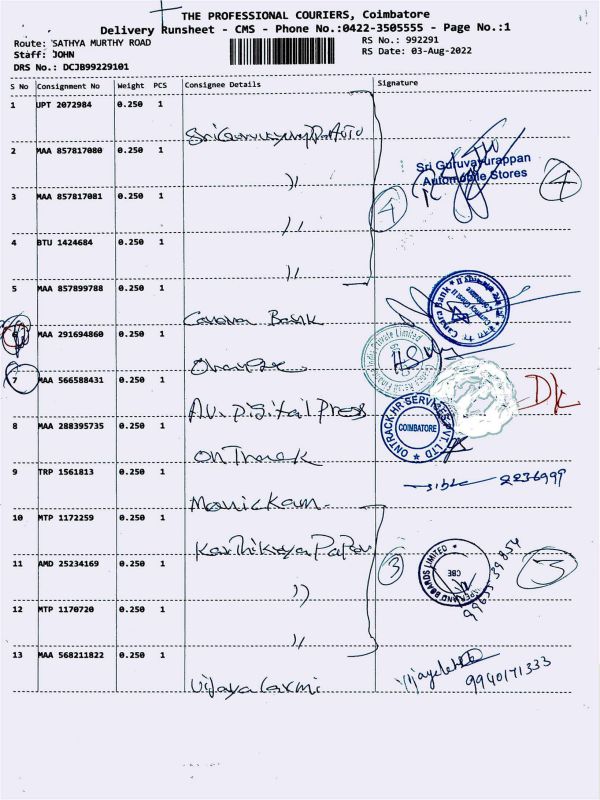 THE PROFESSIONAL COURIERS, Coimbatore
Delivery Runsheet - CMS - Phone No.:0422-3505555 - Page No.:1
Route: SATHYA MURTHY ROAD
RS No.: 992291
Staff: JOHN
RS Date: 03-Aug-2022
DRS No.: DCJB99229101
S No Consignment No Weight PCS Consignee Details Signature
1 UPT 2072984 0.250 1
2 MAA 857817080 0.250 1 〃
Sri Guruvayurappan
Automobile Stores
4
3 MAA 857817081 0.250 1 〃
4
4 BTU 1424684 0.250 1 〃
5 MAA 857899788 0.250 1 Canara Bank
Canara Bank
6 MAA 291694860 0.250 1
Private Limited
7 MAA 566588431 0.250 1 AV. Digital Press
DK
8 MAA 288395735 0.250 1 On Track
ONTRACK HR SERVICES PVT. LTD
COIMBATORE
9 TRP 1561813 0.250 1 Manickam
2236999
10 MTP 1172259 0.250 1 Karthikeya Paper
11 AMD 25234169 0.250 1 〃
3
BOARDS LIMITED
CBE
3
12 MTP 1170720 0.250 1 〃
13 MAA 568211822 0.250 1 Vijaya Laxmi
9940171333